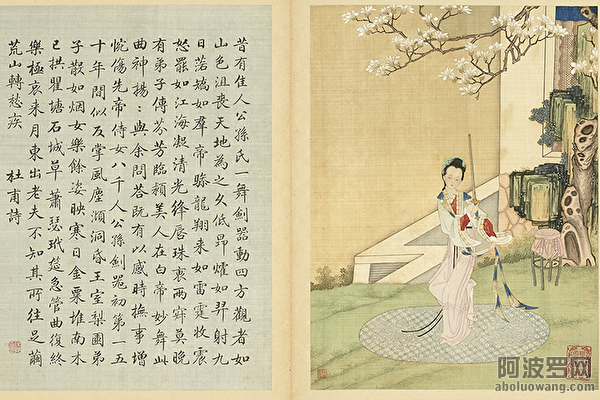 昔有佳人公孫氏一舞劍器動四方觀者如
山色沮喪天地為之久低昂㸌如羿射九
日落矯如羣帝驂龍翔来如雷霆收震
怒罷如江海凝清光絳唇珠袖兩寂寞晚
有弟子傳芬芳臨潁美人在白帝妙舞此
曲神揚〻與余問答既有以感時撫事增
惋傷先帝侍女八千人公孫劍器初第一五
十年間似反掌風塵澒洞昏王室梨園弟
子散如烟女樂餘姿映寒日金粟堆南木
已拱瞿塘石城草蕭瑟玳筵急管曲復終
樂極哀来月東出老夫不知其所往足繭
荒山轉愁疾
杜甫詩
阿波罗网
aboluowang.com